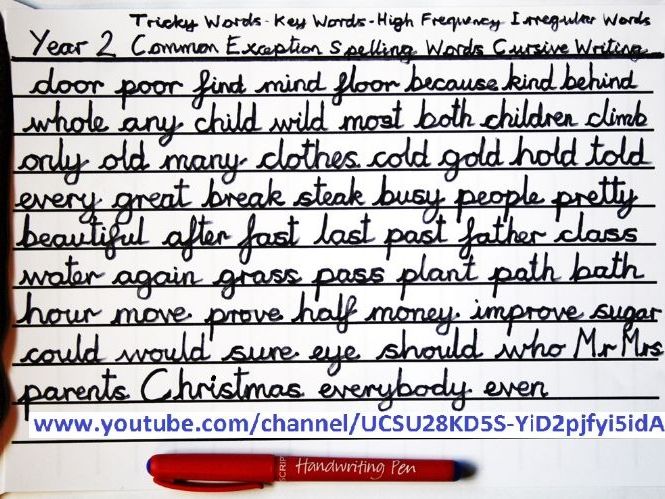 Tricky Words-Key Words-High Frequency Irregular Words
Year 2 Common Exception Spelling Words Cursive Writing
door poor find mind floor because kind behind
whole any child wild most both children climb
only old many clothes cold gold hold told
every great break steak busy people pretty
beautiful after fast last past father class
water again grass pass plant path bath
hour move prove half money improve sugar
could would sure eye should who Mr Mrs
parents Christmas everybody even
www.youtube.com/channel/UCSU28KD5S-YiD2pjfyi5idA
SCRIPT Handwriting Pen